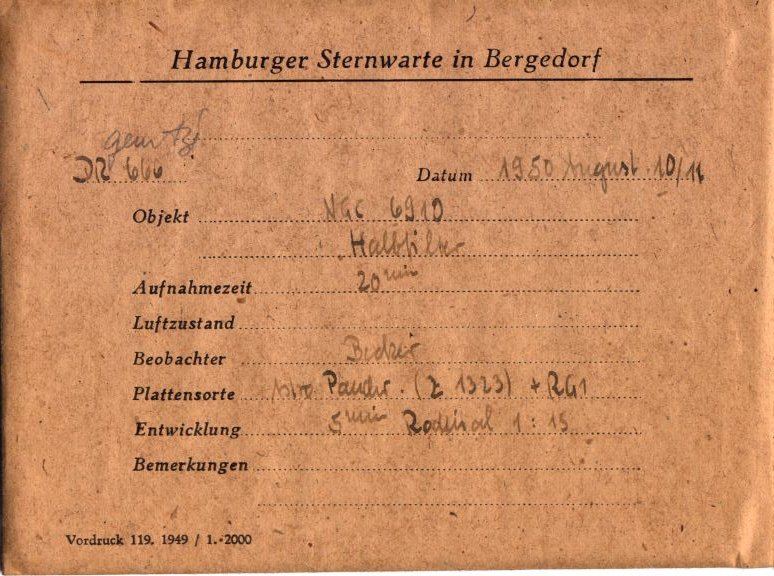 Hamburger Sternwarte in Bergedorf
DR 666
Datum 1950 August 10/11
Objekt NGC 6910
Halbfilter
Aufnahmezeit 20 min
Luftzustand
Beobachter Becker
Plattensorte Panchr. (Z 1323) + RG1
Entwicklung 5 min Rodinal 1 : 15
Bemerkungen
Vordruck 119. 1949 / 1.-2000